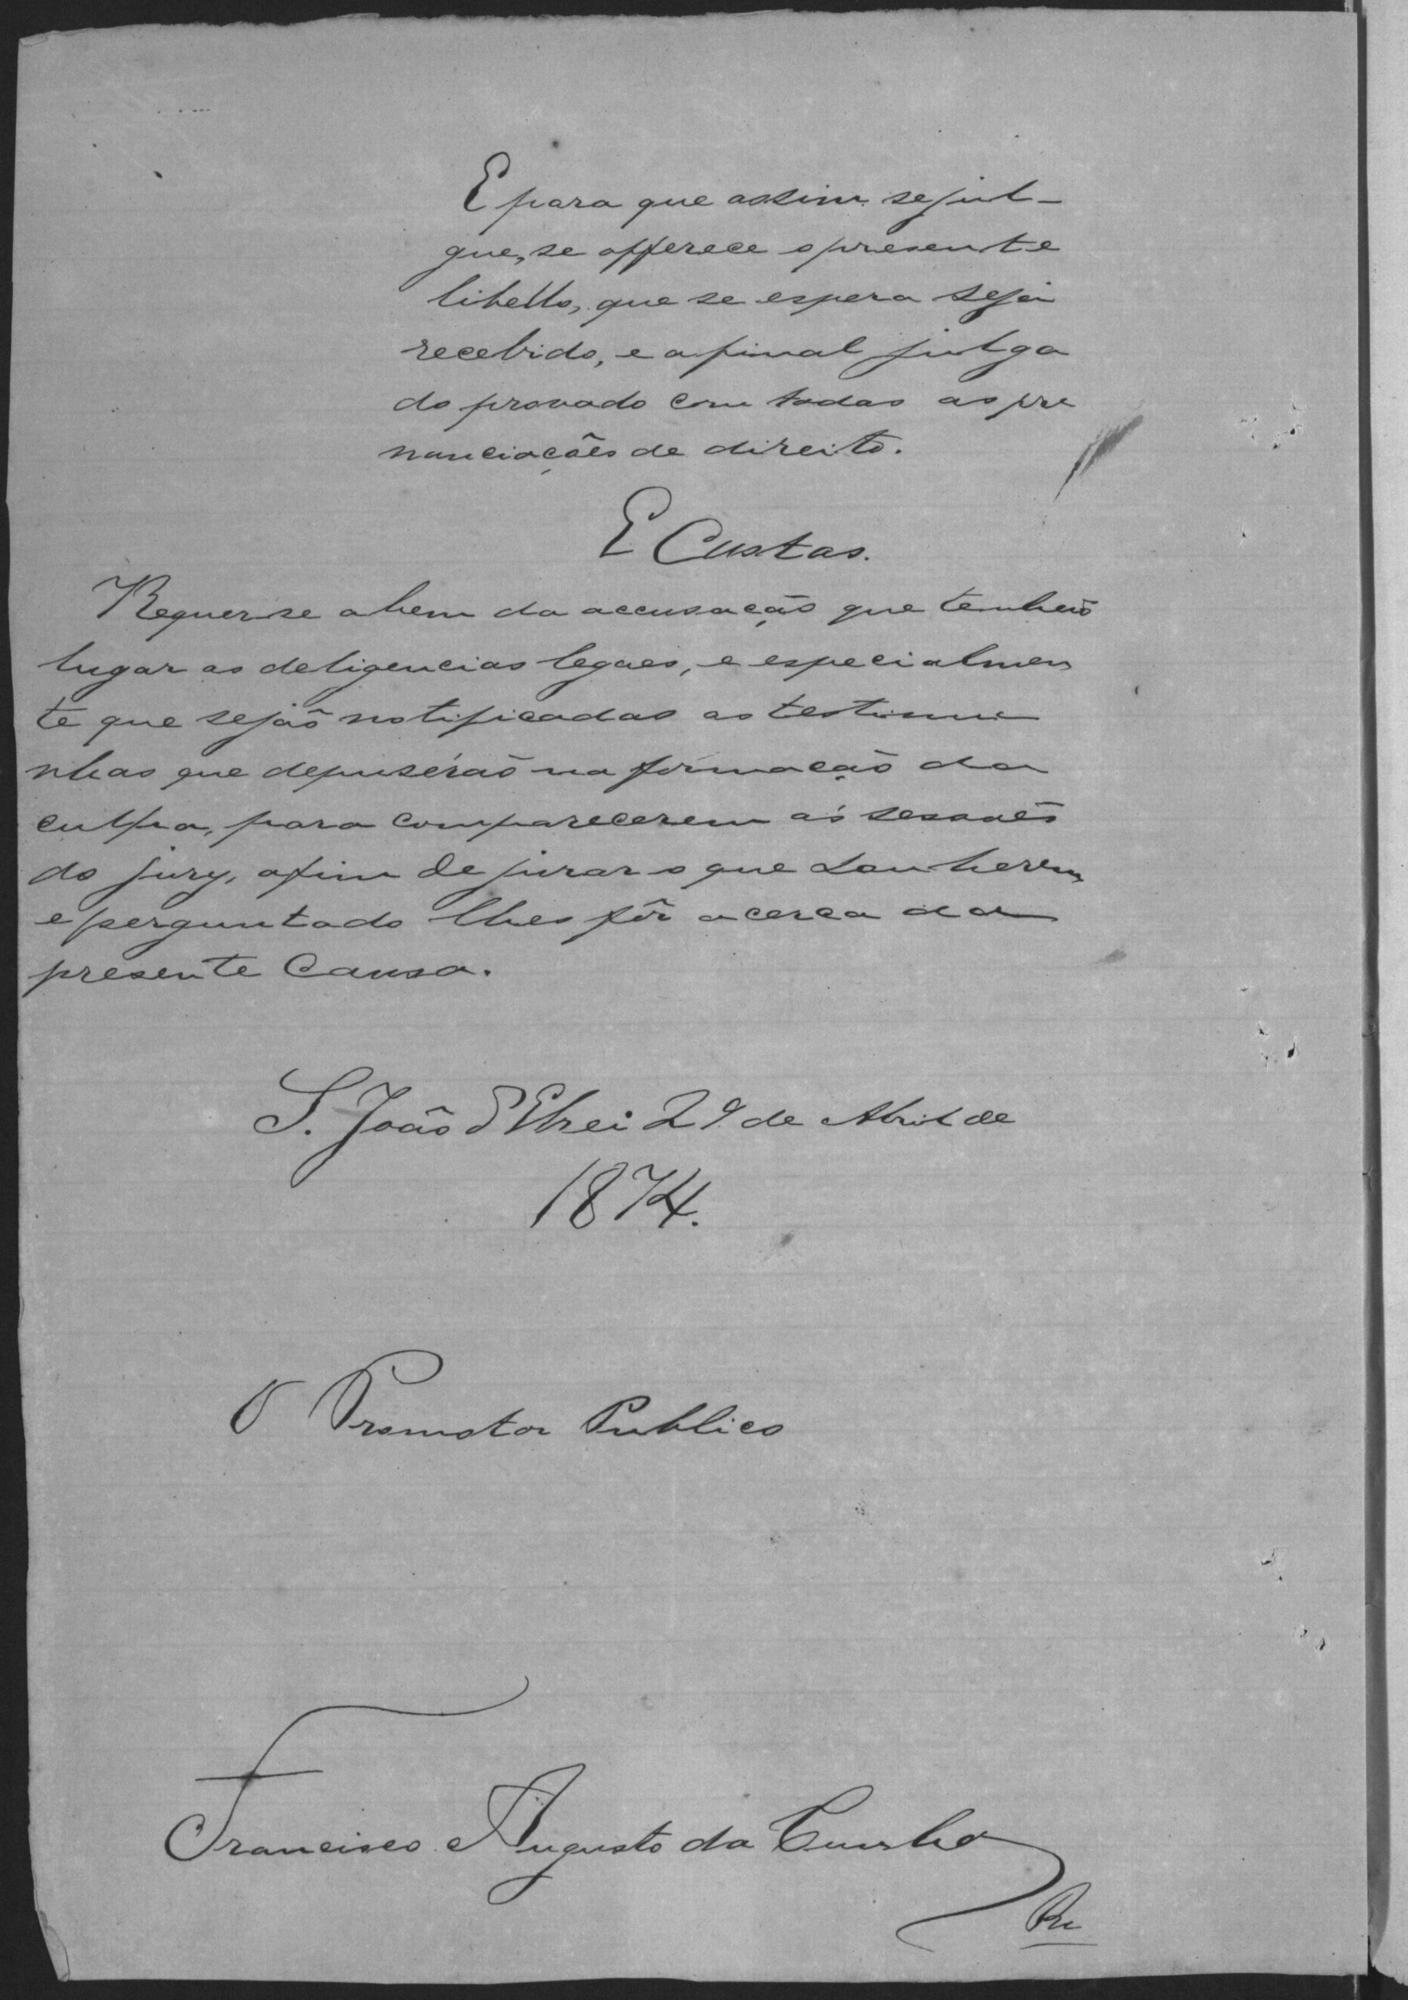 E para que assim se jul-
gue, se offerece o presente
libello, que se espera seja
recebido, e afinal julga
do provado com todas as pro
nunciações de direito.
E Custas.
Requer-se a bem da accusação que tenhão
lugar as deligencias legaes, e especialmen
te que sejão notificadas as testimu
nhas que depuserão na formação da
culpa, para comparecerem ás sessões
do jury, afim de jurar o que souberem,
e perguntado lhes fôr acerca da
presente Causa.
S. João d'Elrei 29 de Abril de
1874.
O Promotor Publico
Francisco Augusto da Cunha